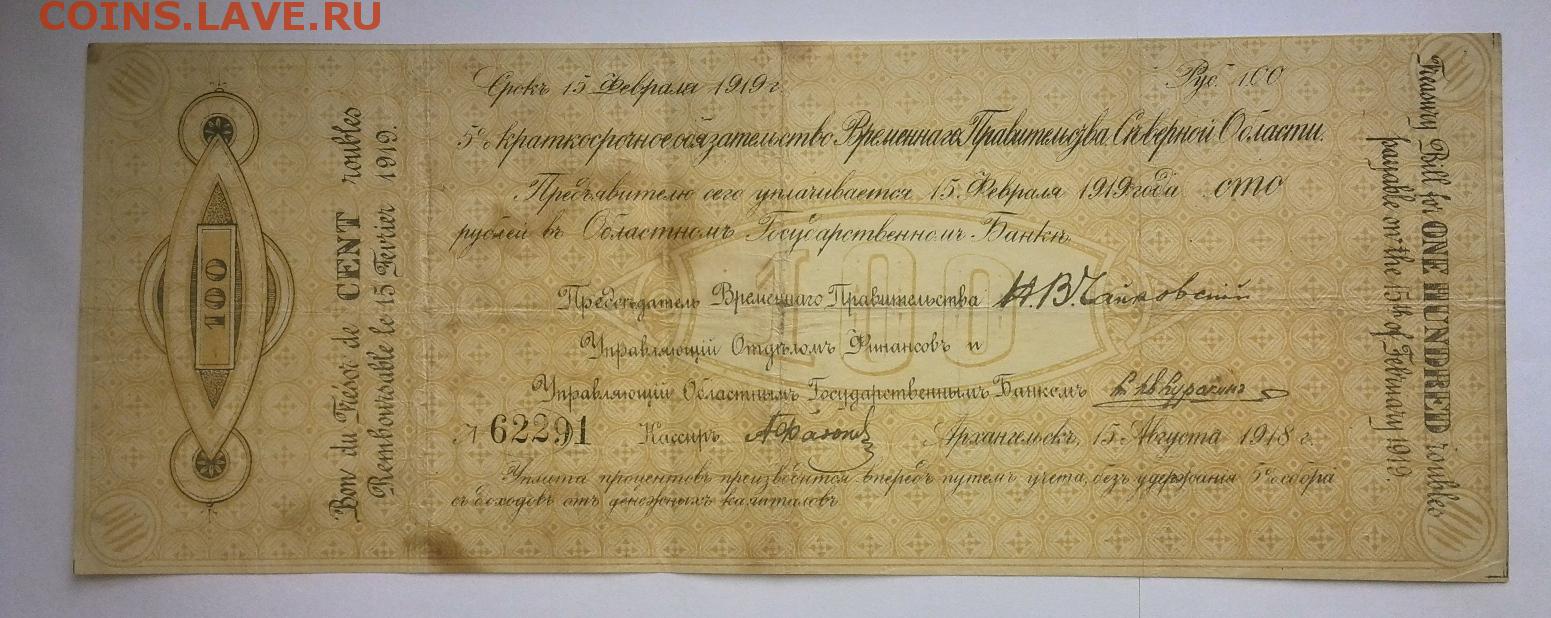 COINS.LAVE.RU
Срокъ 15 Февраля 1919 г.
Рус. 100
5% краткосрочное обязательство Временнаго Правительства Сѣверной Области.
Предъявителю сего уплачивается 15 Февраля 1919 года сто
рублей въ Областномъ Государственномъ Банкѣ.
Предсѣдатель Временнаго Правительства Н. В. Чайковскій
Управляющій Отдѣломъ Финансовъ и
Управляющій Областнымъ Государственнымъ Банкомъ Кн. Ив. Куракинъ
№ 62291 Кассиръ Архангельскъ, 15 Августа 1918 г.
Уплата процентовъ производится впередъ путемъ учета, безъ удержания 5% сбора
съ доходовъ отъ денежныхъ капиталовъ
100
100
Bon du Trésor de CENT roubles
Remboursable le 15 Fevrier 1919.
Treasury Bill for ONE HUNDRED roubles
payable on the 15th of February 1919.